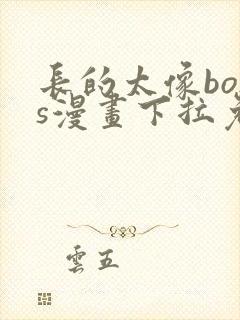 長的太像bos
s漫畫下拉
雲五